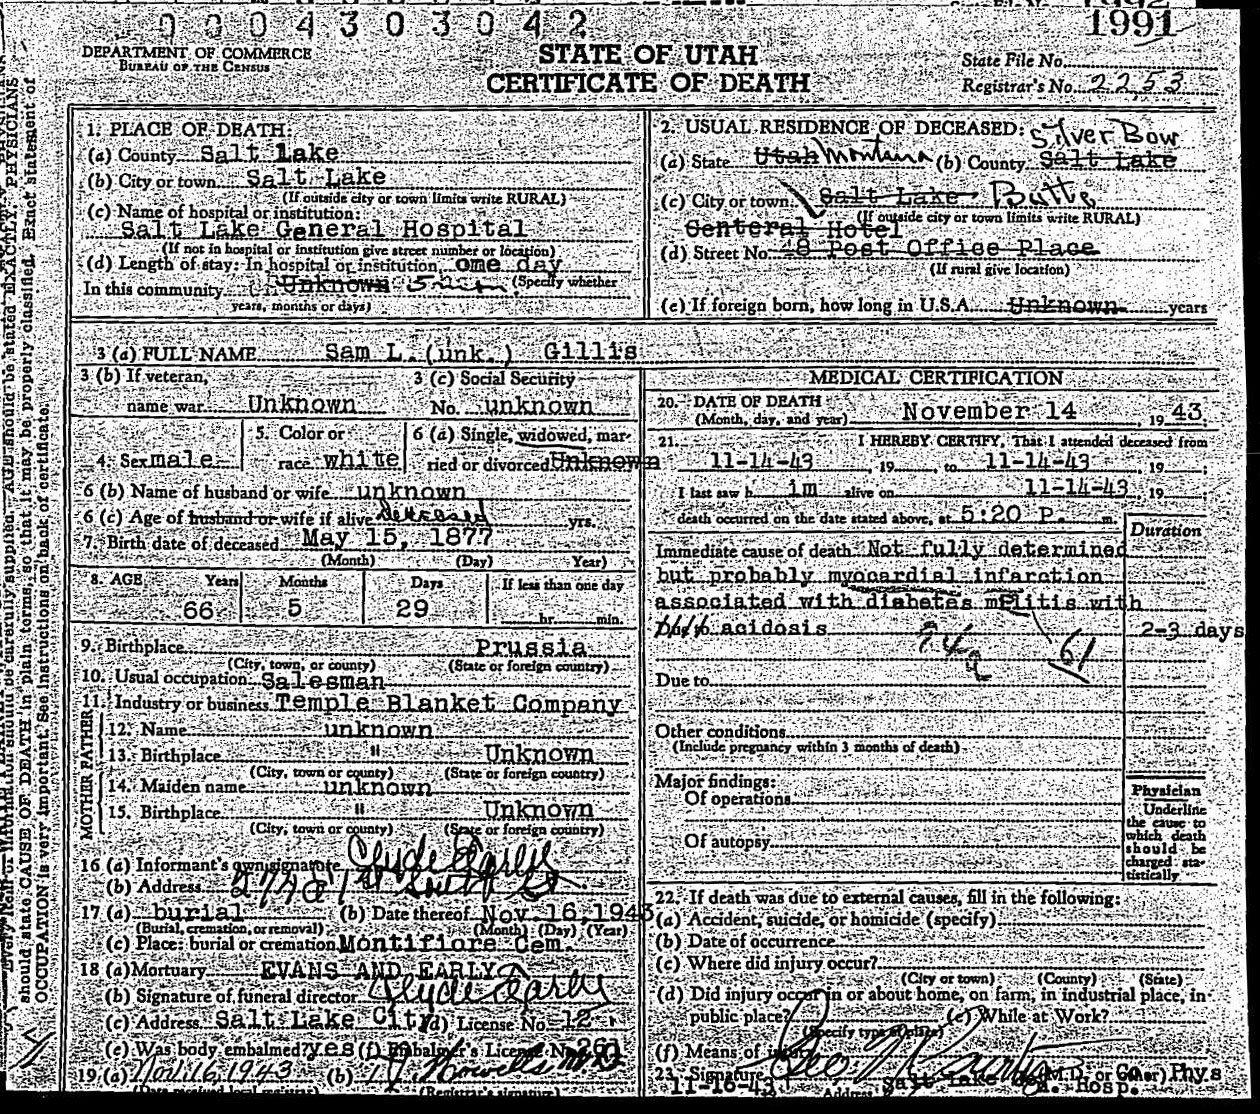 0 0 0 4 3 0 3 0 4 2
1991
DEPARTMENT OF COMMERCE
BUREAU OF THE CENSUS
STATE OF UTAH
CERTIFICATE OF DEATH
State File No.
Registrar's No. 2253
1. PLACE OF DEATH:
(a) County Salt Lake
(b) City or town Salt Lake
(If outside city or town limits write RURAL)
(c) Name of hospital or institution:
Salt Lake General Hospital
(If not in hospital or institution give street number or location)
(d) Length of stay: In hospital or institution ome day
In this community Unknown (Specify whether
years, months or days)
2. USUAL RESIDENCE OF DECEASED: Silver Bow
(a) State Utah Montana (b) County Salt Lake
(c) City or town Salt Lake Butte
(If outside city or town limits write RURAL)
Genteral Hotel
(d) Street No. 48 Post Office Place
(If rural give location)
(e) If foreign born, how long in U.S.A. Unknown years
3 (a) FULL NAME Sam L. (unk.) Gillis
3 (b) If veteran,
name war Unknown
3 (c) Social Security
No. unknown
4. Sex male
5. Color or
race white
6 (a) Single, widowed, mar-
ried or divorced Unknown
6 (b) Name of husband or wife unknown
6 (c) Age of husband or wife if alive deceased yrs.
7. Birth date of deceased May 15, 1877
(Month) (Day) Year)
8. AGE Years Months Days If less than one day
66 5 29 hr. min.
9. Birthplace Prussia
(City, town, or county) (State or foreign country)
10. Usual occupation Salesman
11. Industry or business Temple Blanket Company
MOTHER FATHER
12. Name unknown
13. Birthplace " Unknown
(City, town or county) (State or foreign country)
14. Maiden name unknown
15. Birthplace " Unknown
(City, town or county) (State or foreign country)
16 (a) Informant's own signature Clyde Early
(b) Address
17 (a) burial (b) Date thereof Nov. 16, 1943
(Burial, cremation, or removal) (Month) (Day) (Year)
(c) Place: burial or cremation Montifiore Cem.
18 (a) Mortuary EVANS AND EARLY
(b) Signature of funeral director Clyde Early
(c) Address Salt Lake City (d) License No. 12
(e) Was body embalmed? yes (f) Embalmer's License No. 260
19 (a) Nov. 16 1943 (b)
(Registrar's signature)
MEDICAL CERTIFICATION
20. DATE OF DEATH
(Month, day, and year) November 14, 19 43
21. I HEREBY CERTIFY, That I attended deceased from
11-14-43, 19 to 11-14-43, 19 ;
I last saw h im alive on 11-14-43 19
death occurred on the date stated above, at 5:20 P. m.
Duration
Immediate cause of death Not fully determined
but probably myocardial infarction
associated with diabetes melitis with
acidosis 2-3 days
61
Due to
Other conditions
(Include pregnancy within 3 months of death)
Major findings:
Of operations
Of autopsy
Physician
Underline
the cause to
which death
should be
charged sta-
tistically.
22. If death was due to external causes, fill in the following:
(a) Accident, suicide, or homicide (specify)
(b) Date of occurrence
(c) Where did injury occur?
(City or town) (County) (State)
(d) Did injury occur in or about home, on farm, in industrial place, in
public place? (e) While at Work?
(Specify type of place)
(f) Means of
23. Signature (M.D. or other) Phys
11-16-43 Address Salt Lake Co. Hosp.
should state CAUSE OF DEATH in plain terms, so that it may be properly classified. Exact statement of
OCCUPATION is very important. See instructions on back of certificate.